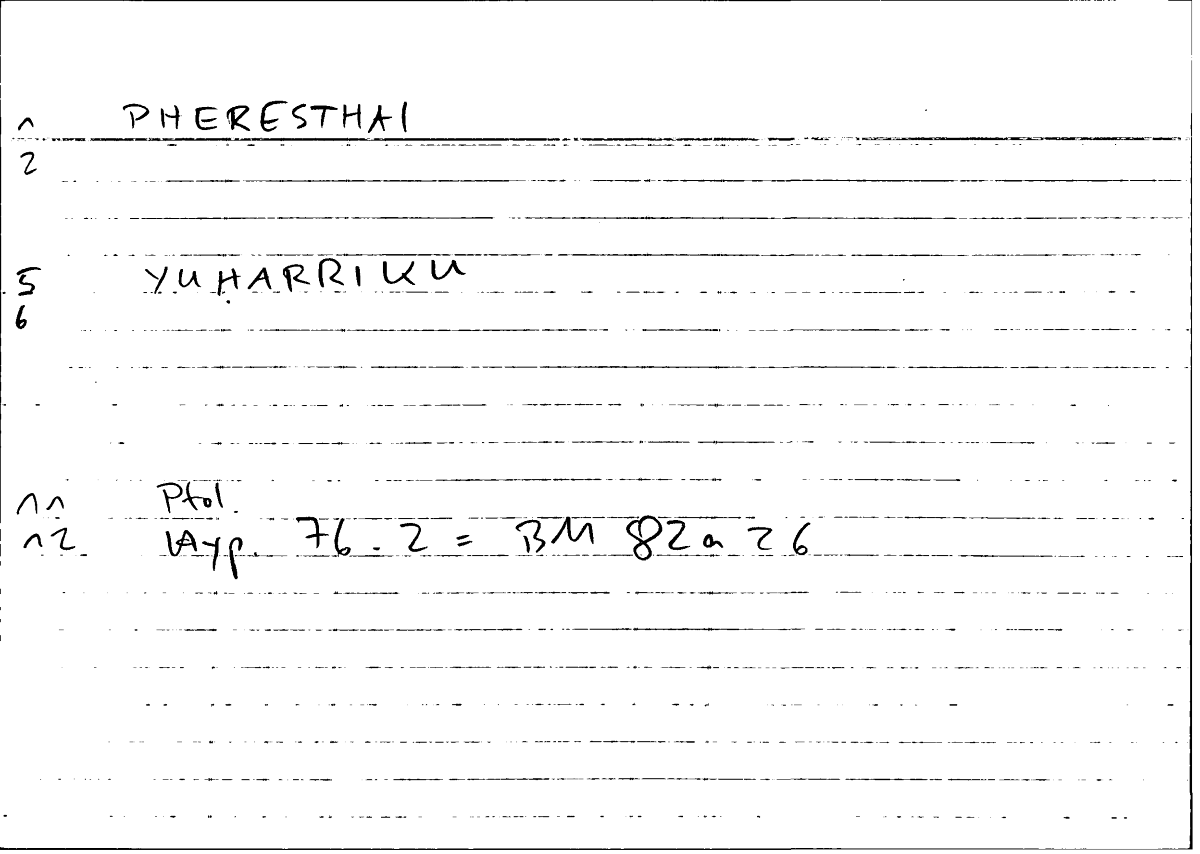 1 PHERESTHAI
2
5 YUḤARRIKU
6
11 Ptol.
12 Hyp. 76.2 = BM 82a 26